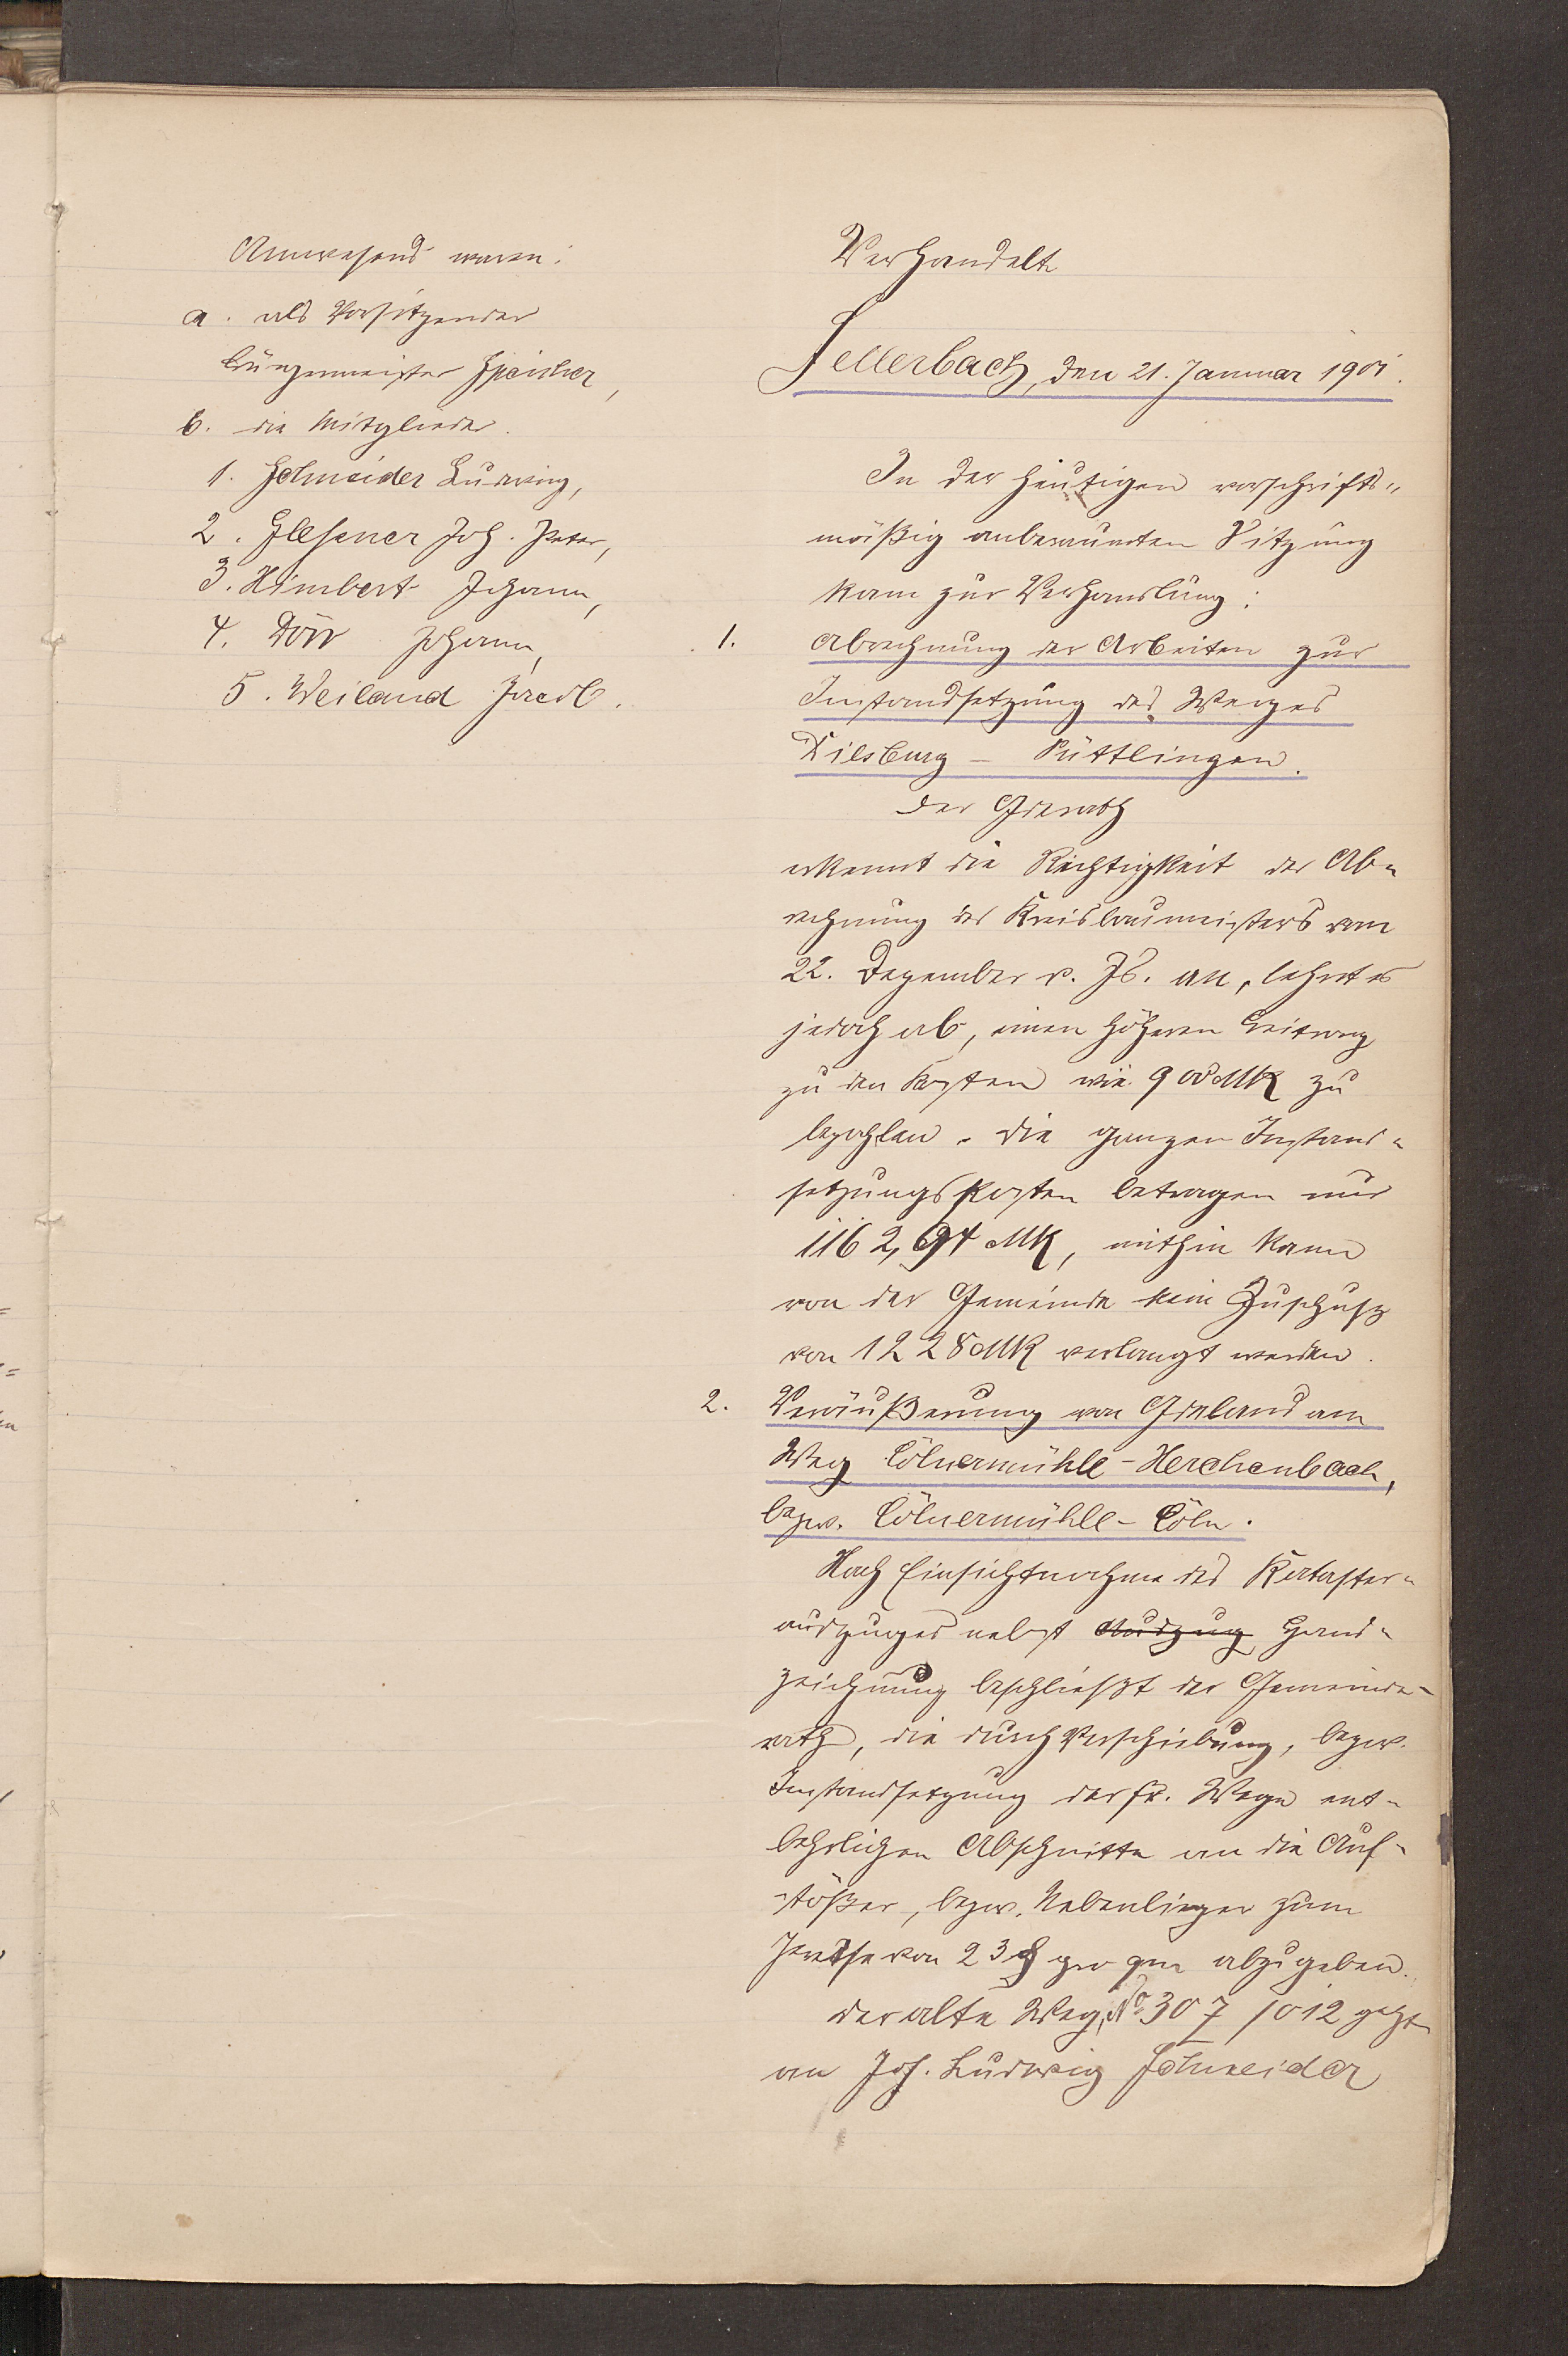 Anwesend waren:
a. als Vorsitzender
Bürgermeister Speicher,
b. die Mitglieder.
1. Schneider Ludwig,
2. Glessner Joh. Peter,
3. Himbert Johann,
4. Dörr Johann,
5. Weiland Jacob.
Verhandelt
Sellerbach, den 21. Januar 1901.
In der heutigen vorschrifts-
mäßig anberaumten Sitzung
kam zur Verhandlung:
1. Abrechnung der Arbeiten zur
Instandsetzung des Weges
Dilsburg - Püttlingen.
Der Gderath
erkennt die Richtigkeit der Ab-
rechnung des Kreisbaumeisters vom
22. Dezember v. Js. an, lehnt es
jedoch ab, einen höheren Beitrag
zu den Kosten wie 900 Mk zu
bezahlen. Die ganzen Instand-
setzungskosten betragen nur
1162,94 Mk, mithin kann
von der Gemeinde kein Zuschuß
von 1228 Mk verlangt werden.
2. Veräußerung von Gdeland am
Weg Cölnermühle - Herchenbach,
bezw. Cölnermühle - Cöln.
Nach Einsichtnahme des Kataster-
auszuges nebst Auszug Hand-
zeichnung beschließt der Gemeinde-
rath, die durch Verschiebung, bezw.
Instandsetzung der fr. Wege ent-
behrlichen Abschnitte an die Auf-
stößer, bezw. Nebenlieger zum
Preise von 23 ₰ pro qm abzugeben.
Der alte Weg, No 307/012 geht
an Joh. Ludwig Schneider